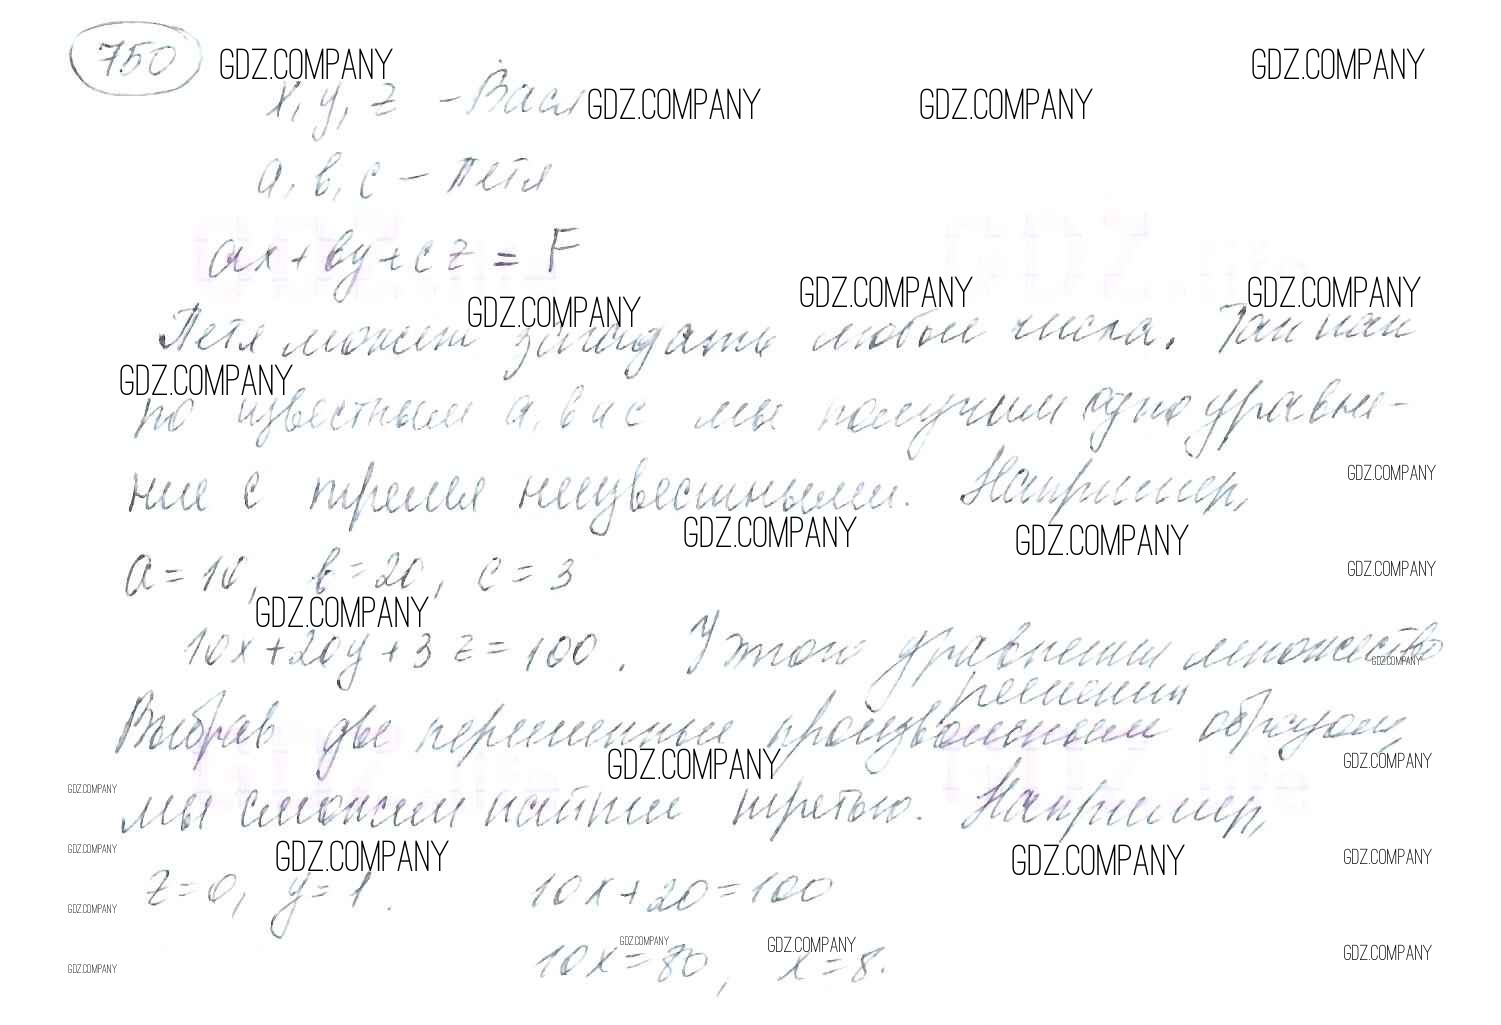 750 GDZ.COMPANY GDZ.COMPANY
x, y, z - Вася GDZ.COMPANY GDZ.COMPANY
a, b, c - Петя
ax + by + cz = F
GDZ.COMPANY GDZ.COMPANY GDZ.COMPANY
Петя может загадать любые числа. Так как
GDZ.COMPANY
по известным a, b и c мы получим одно уравне-
ние с тремя неизвестными. Например, GDZ.COMPANY
GDZ.COMPANY GDZ.COMPANY
a = 10, b = 20, c = 3 GDZ.COMPANY
GDZ.COMPANY
10x + 20y + 3z = 100. У этого уравнения множество GDZ.COMPANY
решений
Выбрав две переменные произвольным образом,
GDZ.COMPANY GDZ.COMPANY
GDZ.COMPANY
мы сможем найти третью. Например,
GDZ.COMPANY GDZ.COMPANY GDZ.COMPANY GDZ.COMPANY
z = 0, y = 1. 10x + 20 = 100
GDZ.COMPANY
GDZ.COMPANY GDZ.COMPANY GDZ.COMPANY
10x = 80, x = 8.
GDZ.COMPANY